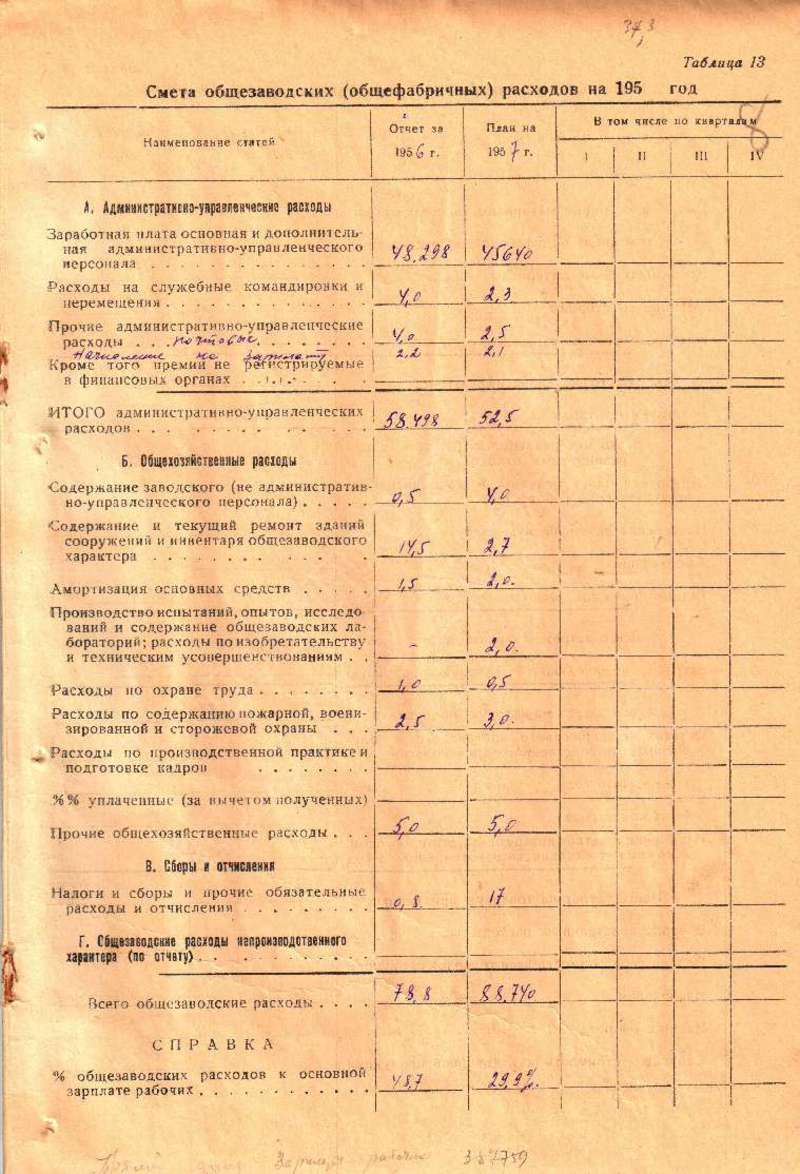 373
Таблица 13
Смета общезаводских (общефабричных) расходов на 195 год
Наименование статей
Отчет за
1956 г.
План на
1957 г.
В том числе по кварталам
I II III IV
А. Административно-управленческие расходы
Заработная плата основная и дополнитель-
ная административно-управленческого
персонала . . . . . . . . . . . . . . . 48.298 45640
Расходы на служебные командировки и
перемещения . . . . . . . . . . . . . . 4,0 2,3
Прочие административно-управленческие
расходы . . . почтовые . . . . . . . 4,0 2,5
Начисление на зарплату 2.2 2,1
Кроме того премии не регистрируемые
в финансовых органах . . . . . . . .
ИТОГО административно-управленческих
расходов . . . . . . . . . . . . . . . 58.498 52,5
Б. Общехозяйственные расходы
Содержание заводского (не административ-
но-управленческого персонала) . . . . . 0,5 4,0
Содержание и текущий ремонт зданий
сооружений и инвентаря общезаводского
характера . . . . . . . . . . . . 14,5 2,7
Амортизация основных средств . . . . . 1,5 2,0.
Производство испытаний, опытов, исследо-
ваний и содержание общезаводских ла-
бораторий; расходы по изобретательству
и техническим усовершенствованиям . . – 2,0.
Расходы по охране труда . . . . . . . . 1,0 0,5
Расходы по содержанию пожарной, воени-
зированной и сторожевой охраны . . . 2,5 3,0.
Расходы по производственной практике и
подготовке кадров . . . . . . . .
%% уплаченные (за вычетом полученных)
Прочие общехозяйственные расходы . . . 5,0 5,0
В. Сборы и отчисления
Налоги и сборы и прочие обязательные
расходы и отчисления . . . . . . . . . 0,8. 17
Г. Общезаводские расходы непроизводственного
характера (по отчету) . . . . . . . . . .
Всего общезаводские расходы . . . . 78,8 88.740
СПРАВКА
% общезаводских расходов к основной
зарплате рабочих . . . . . . . . . . . . 48,7 29,9%.
Зарплата рабочих